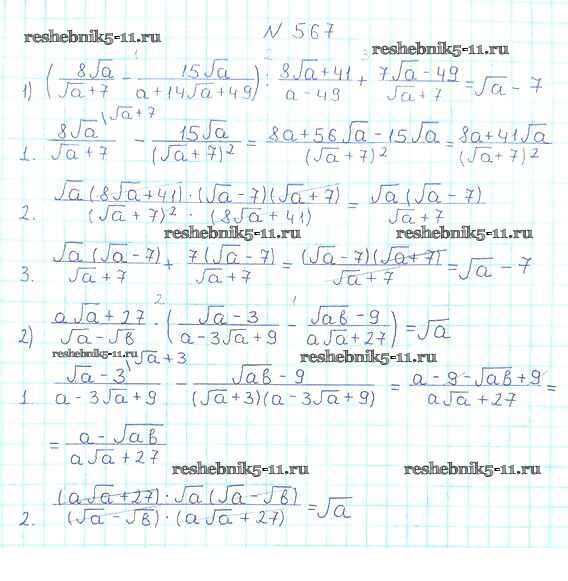 N 567
reshebnik5-11.ru
1) (8√a/(√a+7) - 15√a/(a+14√a+49)) : (8√a+41)/(a-49) + (7√a-49)/(√a+7) = √a-7
1. 8√a/(√a+7) \√a+7 - 15√a/(√a+7)² = (8a+56√a-15√a)/(√a+7)² = (8a+41√a)/(√a+7)²
2. (√a(8√a+41)·(√a-7)(√a+7))/((√a+7)²·(8√a+41)) = √a(√a-7)/(√a+7)
reshebnik5-11.ru reshebnik5-11.ru
3. √a(√a-7)/(√a+7) + 7(√a-7)/(√a+7) = (√a-7)(√a+7)/(√a+7) = √a-7
2) (a√a+27)/(√a-√в) · ((√a-3)/(a-3√a+9) - (√aв-9)/(a√a+27)) = √a
reshebnik5-11.ru reshebnik5-11.ru
1. (√a-3)/(a-3√a+9) \√a+3 - (√aв-9)/((√a+3)(a-3√a+9)) = (a-9-√aв+9)/(a√a+27) =
= (a-√aв)/(a√a+27)
reshebnik5-11.ru reshebnik5-11.ru
2. ((a√a+27)·√a(√a-√в))/((√a-√в)·(a√a+27)) = √a